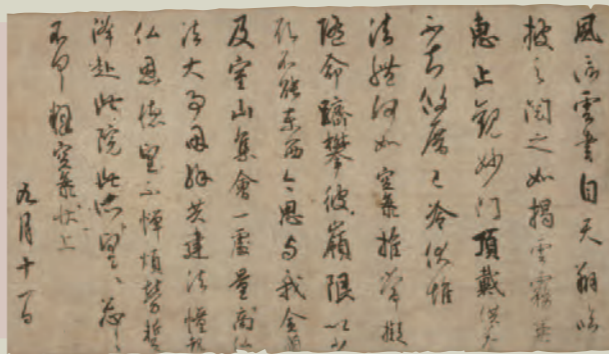 風信雲書自天翔臨
披之閱之如揭雲霧兼
惠止觀妙門頂戴供養
不知攸厝已冷伏惟
法體何如空海推常擬
隨命躋攀彼嶺限以少
願不能東西今思与我金蘭
及室山集會一處量商仏
法大事因緣共建法幢報
仏恩德望不憚煩勞蹔
降赴此院此所望々忩々
不具釋空海狀上
九月十一日